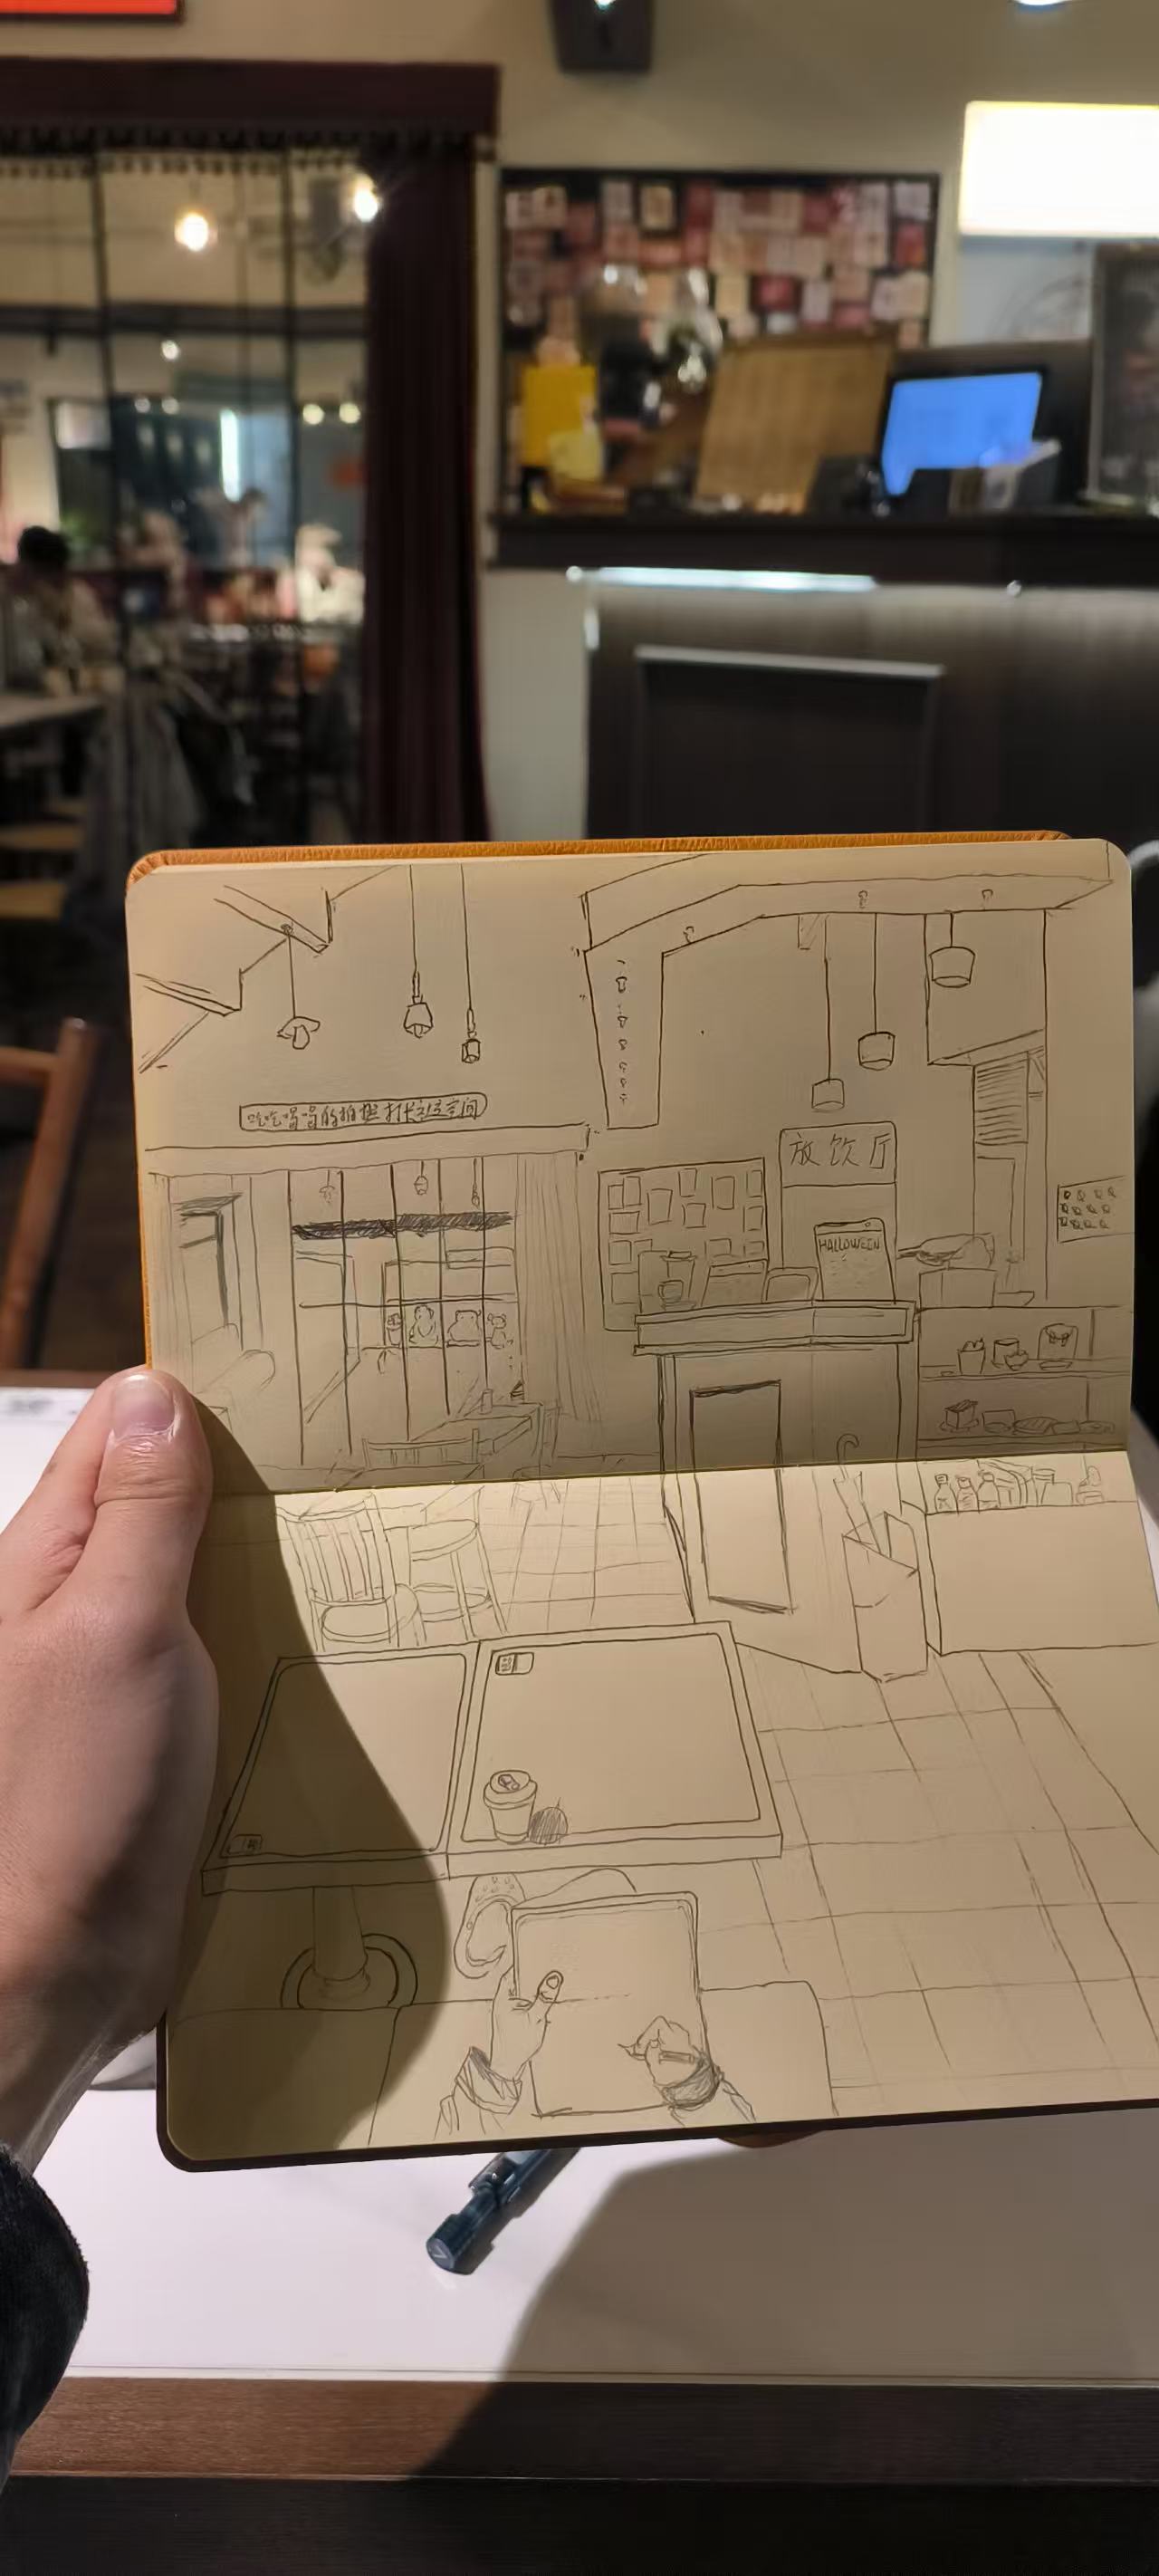 吃吃喝喝的拍照打卡社交空间
放饮厅
HALLOWEEN